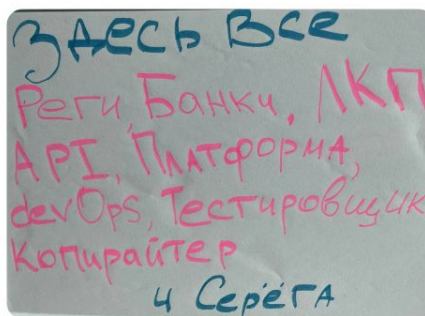 Здесь все
Реги, Банки, ЛКП
API, Платформа,
devOps, Тестировщик
Копирайтер
и Серёга